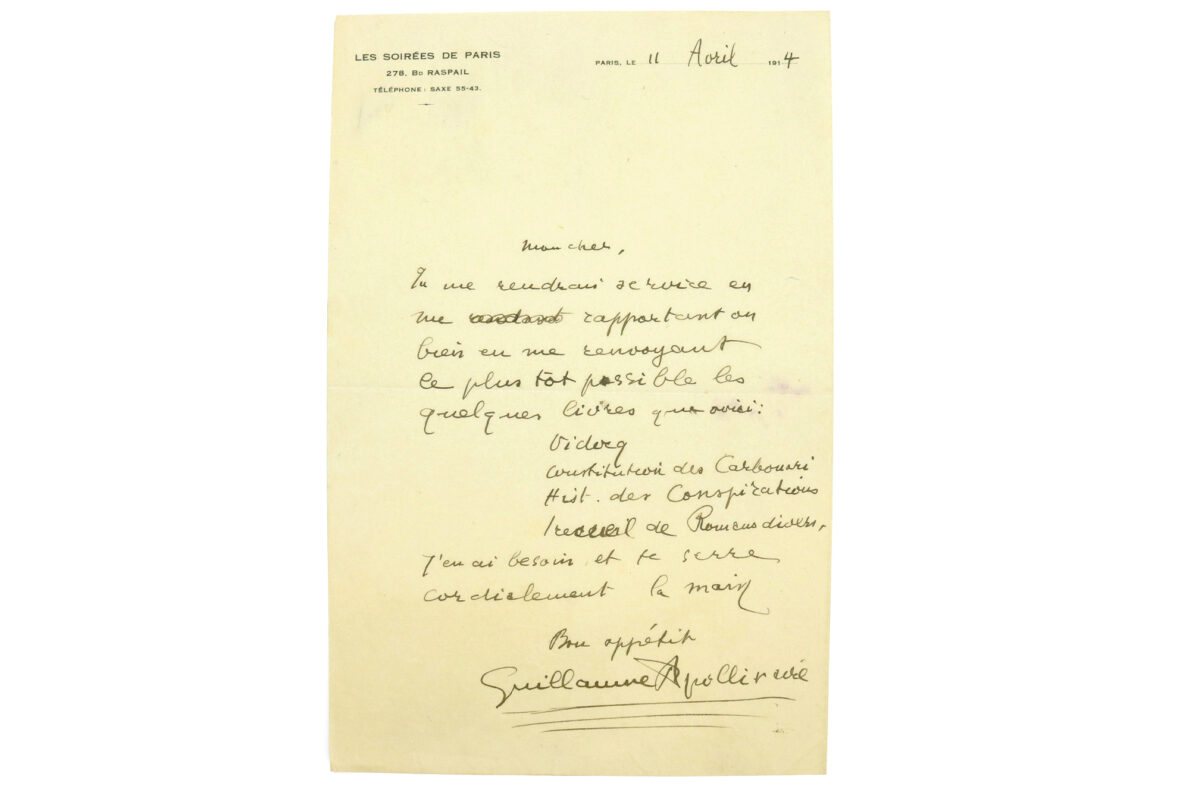 LES SOIRÉES DE PARIS
278, BD RASPAIL
TÉLÉPHONE : SAXE 55-43.
PARIS, LE 11 Avril 1914
Mon cher,
Tu me rendrais service en
me rapportant ou
bien en me renvoyant
le plus tôt possible les
quelques livres que voici :
Vidocq
Constitution des Carbonari
Hist. des Conspirations
1 recueil de Romans divers,
J'en ai besoin et te serre
cordialement la main
Bon appétit
Guillaume Apollinaire